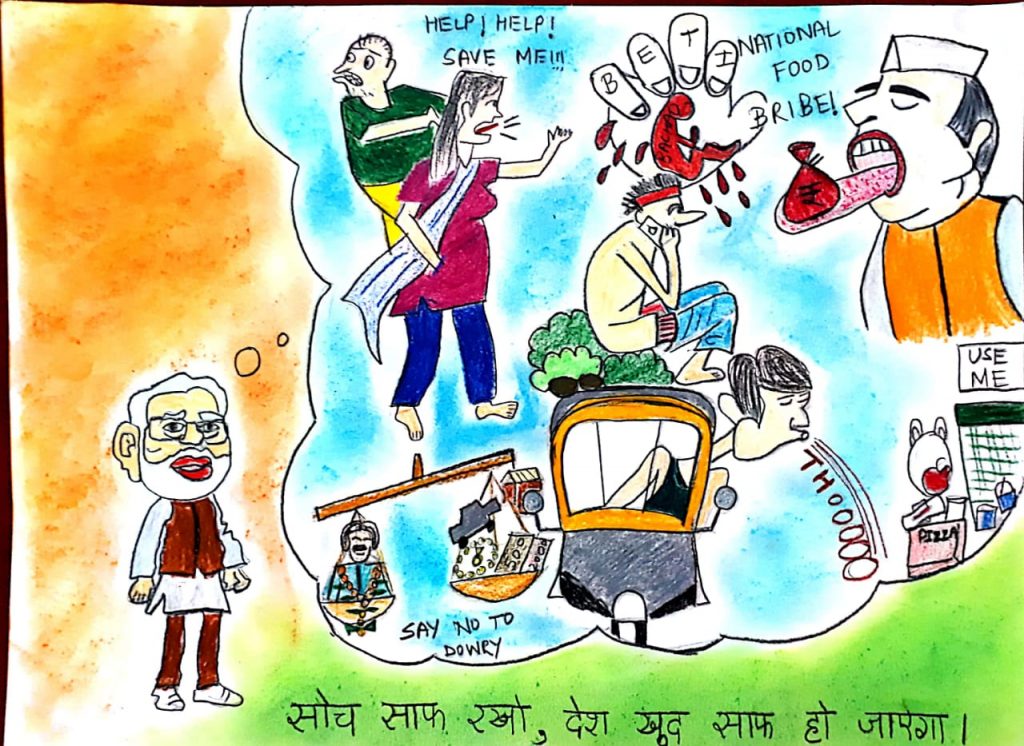 HELP! HELP!
SAVE ME!!!
B E T I
NATIONAL
FOOD
BRIBE!
₹
USE
ME
THOOOOO
PIZZA
SAY NO TO
DOWRY
सोच साफ रखो, देश खुद साफ हो जाएगा।